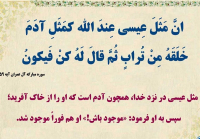 انَّ مَثَلَ عِیسی عِندَ اللّٰه کَمَثَلِ آدَمَ
خَلَقَهُ مِنْ تُرابٍ ثُمَّ قالَ لَهُ کُنْ فَیَکونُ
سوره مبارکه آل عمران آیه ۵۹
مثل عیسی در نزد خدا، همچون آدم است که او را از خاک آفرید؛
سپس به او فرمود: «موجود باش!» او هم فوراً موجود شد.